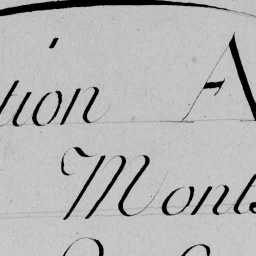 tion A
Monts